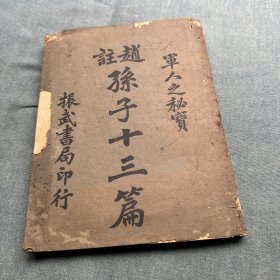 軍人之秘寶
趙註孫子十三篇
振武書局印行